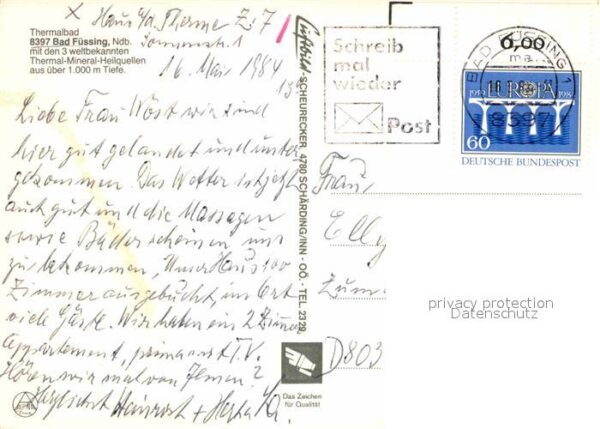 x Haus a/d. Therme Z. 7
Thermalbad
8397 Bad Füssing, Ndb.
mit den 3 weltbekannten
Thermal-Mineral-Heilquellen
aus über 1.000 m Tiefe.
Sonnenstr. 1
16. Mai 1984
Liebe Frau Wöst wir sind
hier gut gelandet und unter
gekommen. Das Wetter ist jetzt
auch gut und die Massagen
sowie Bäder scheinen uns
zu bekommen, Unser Haus 100
Zimmer ausgebucht, im Ort
viele Gäste. Wir haben ein 2 Zimmer
Appartement, prima mit T.V.
Hören wir mal von Ihnen?
Herzlichst Heinrich + Herta
Luftbild SCHEURECKER, 4780 SCHÄRDING/INN - OÖ. - TEL. 23 29
Das Zeichen
für Qualität
Schreib
mal
wieder
Post
0,00
BAD FÜSSING 1
8397
1949 EUROPA 1984
60
DEUTSCHE BUNDESPOST
Frau
Elly
Zum
D 803
privacy protection
Datenschutz